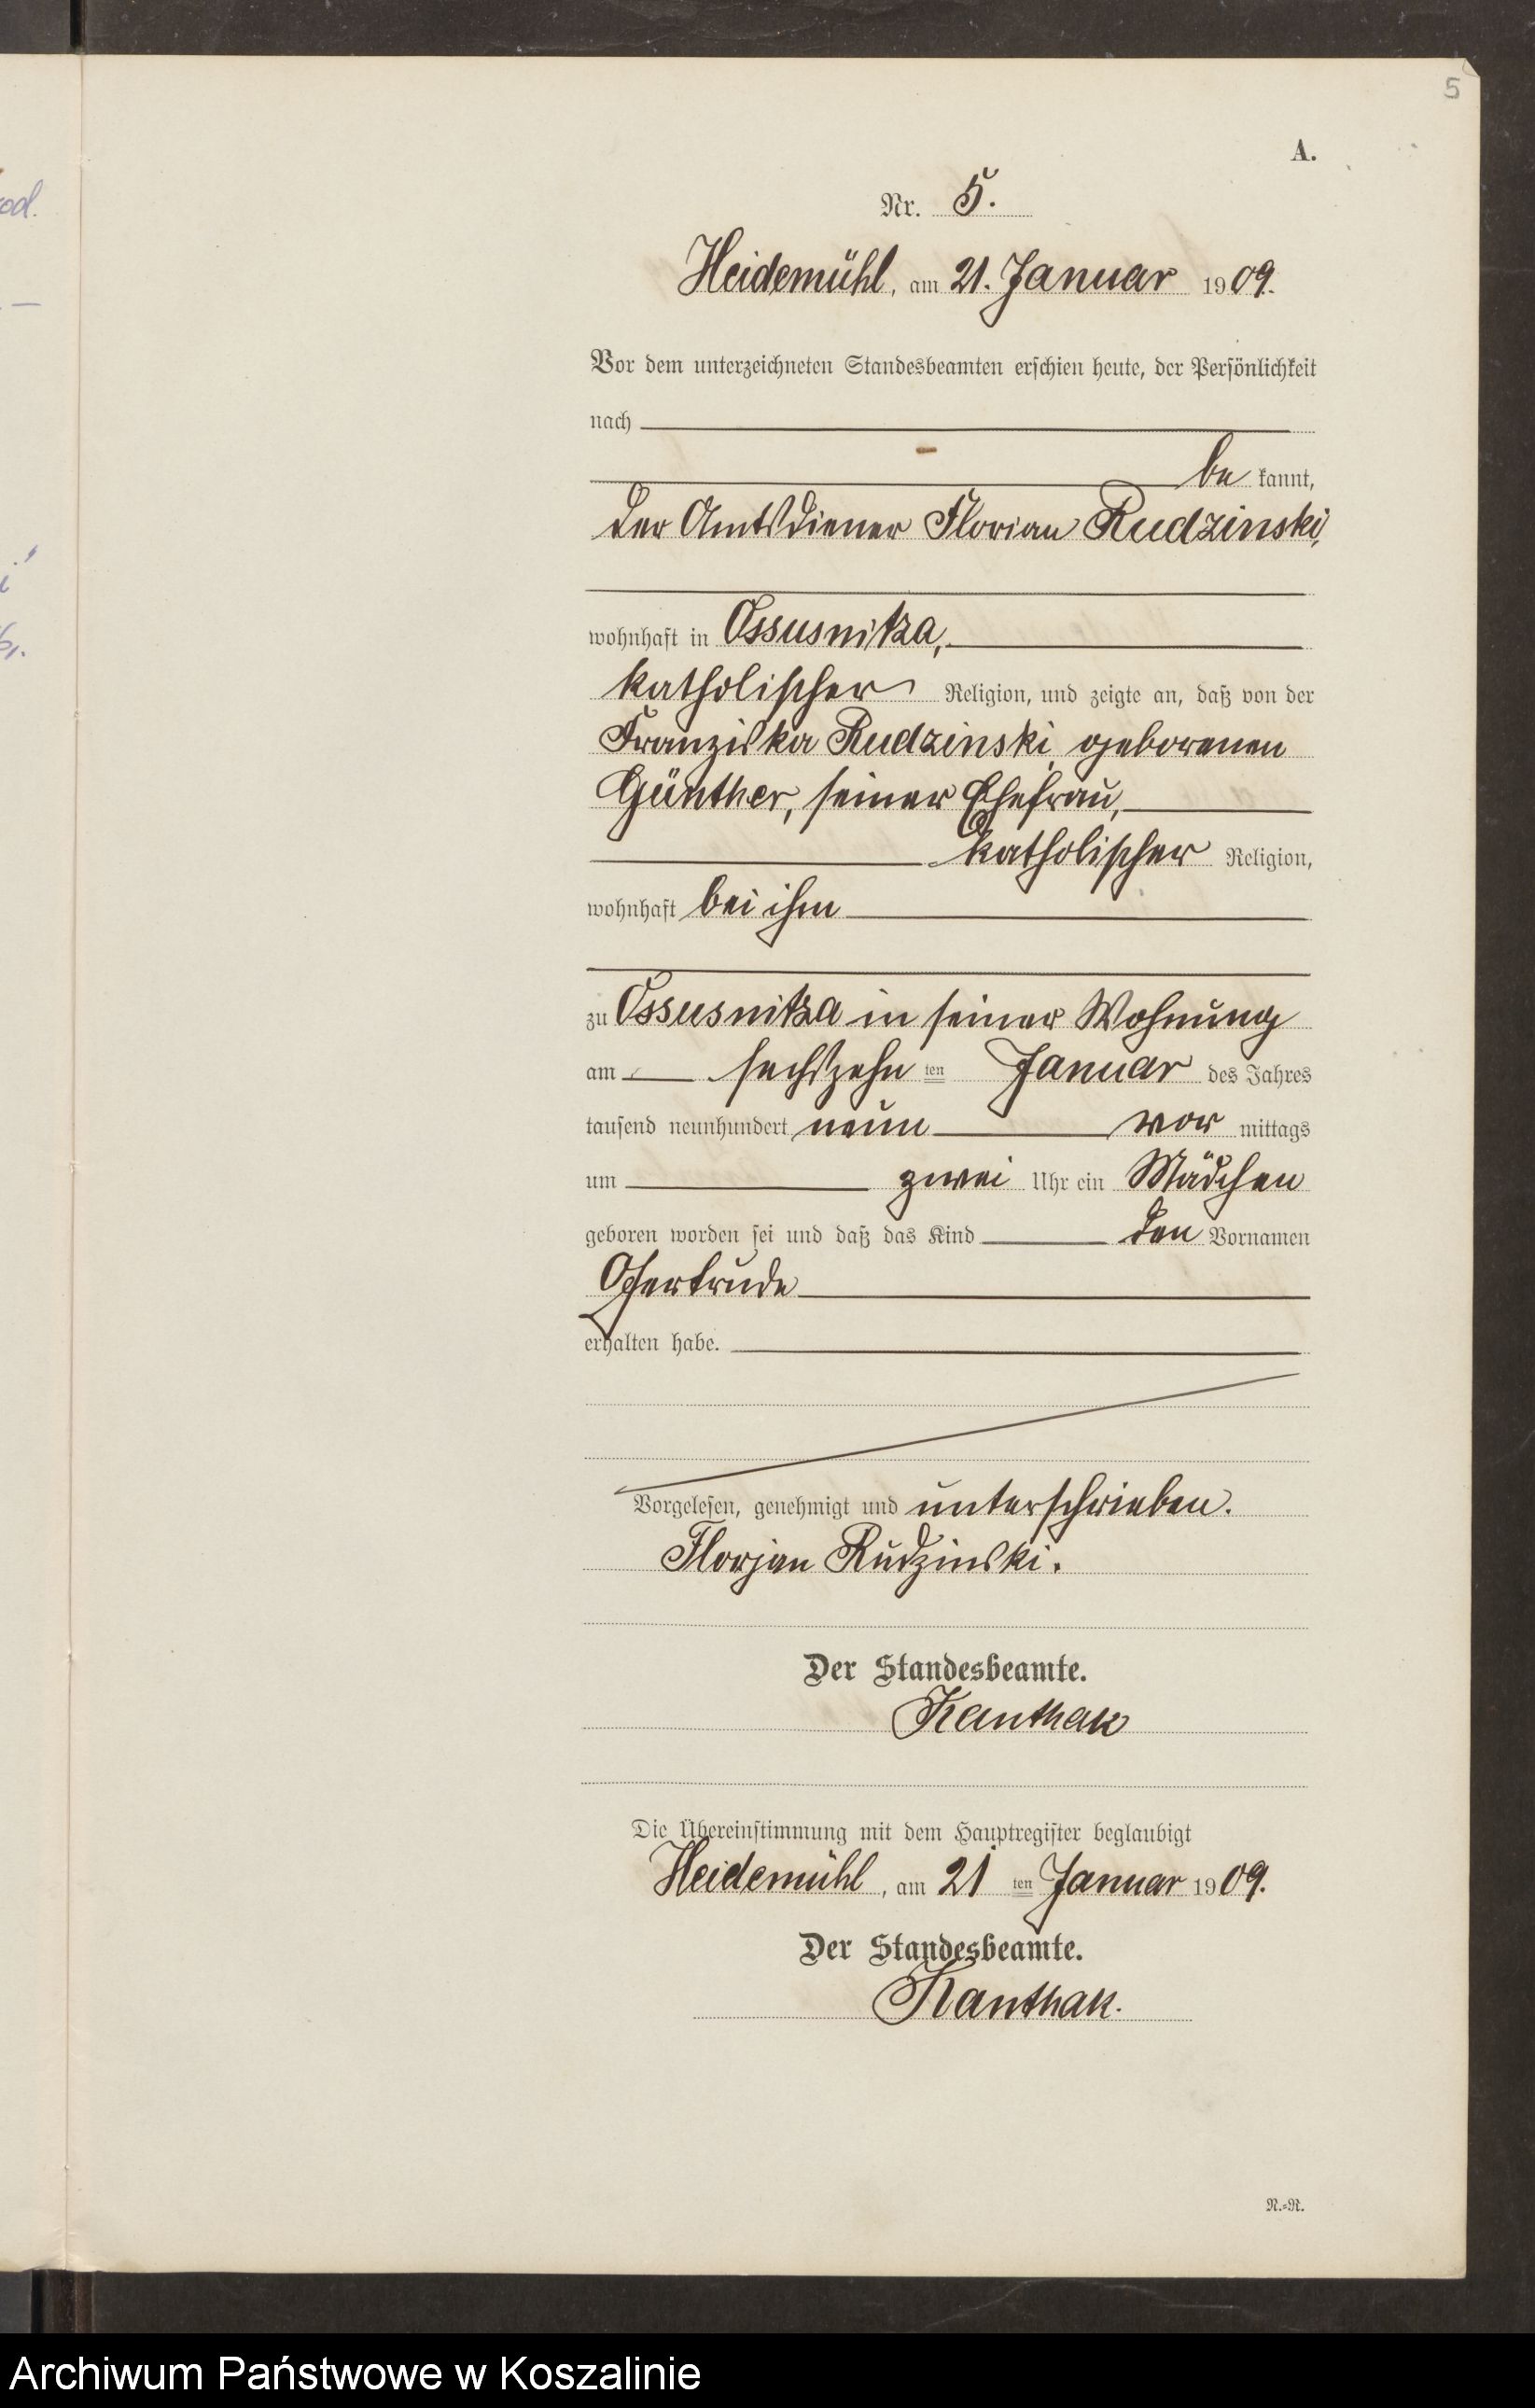 5
A.
Nr. 5.
Heidemühl, am 21. Januar 1909.
Vor dem unterzeichneten Standesbeamten erschien heute, der Persönlichkeit
nach
be kannt,
der Amtsdiener Florian Rudzinski,
wohnhaft in Ossusnitza,
katholischer Religion, und zeigte an, daß von der
Franziska Rudzinski geborenen
Günther, seiner Ehefrau,
katholischer Religion,
wohnhaft bei ihm
zu Ossusnitza in seiner Wohnung
am sechszehn ten Januar des Jahres
tausend neunhundert neun vor mittags
um zwei Uhr ein Mädchen
geboren worden sei und daß das Kind den Vornamen
Gertrude
erhalten habe.
Vorgelesen, genehmigt und unterschrieben.
Florjan Rudzinski.
Der Standesbeamte.
Kanthak
Die Übereinstimmung mit dem Hauptregister beglaubigt
Heidemühl, am 21 ten Januar 1909.
Der Standesbeamte.
Kanthak.
N.=R.
Archiwum Państwowe w Koszalinie